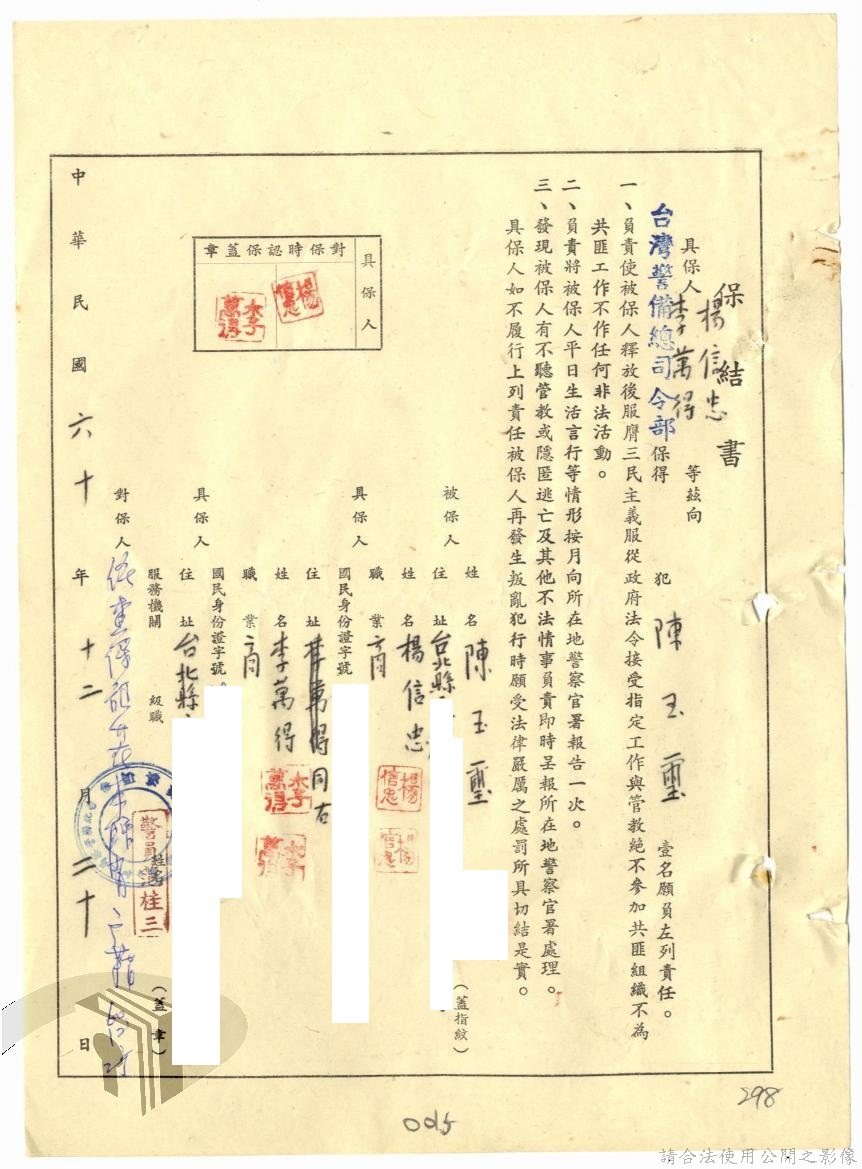 保結書
具保人 楊信忠 李萬得 等茲向
台灣警備總司令部 保得 犯 陳玉璽 壹名願負左列責任。
一、負責使被保人釋放後服膺三民主義服從政府法令接受指定工作與管教絕不參加共匪組織不為
共匪工作不作任何非法活動。
二、負責將被保人平日生活言行等情形按月向所在地警察官署報告一次。
三、發現被保人有不聽管教或隱匿逃亡及其他不法情事員責即時呈報所在地警察官署處理。
具保人如不履行上列責任被保人再發生叛亂犯行時願受法律嚴厲之處罰所具切結是實。
被保人 姓名 陳玉璽 (蓋指紋)
住址 台北縣
具保人 姓名 楊信忠 楊信忠
職業 商
國民身份證字號
住址 李萬得同右
具保人 姓名 李萬得 李萬得
職業 商
國民身份證字號
住址 台北縣
對保人 服務機關 級職 姓名 (蓋章)
警員 柱三
具保人
對保時認保蓋章
楊信忠
李萬得
中華民國六十年十二月二十日
298
005
請合法使用公開之影像